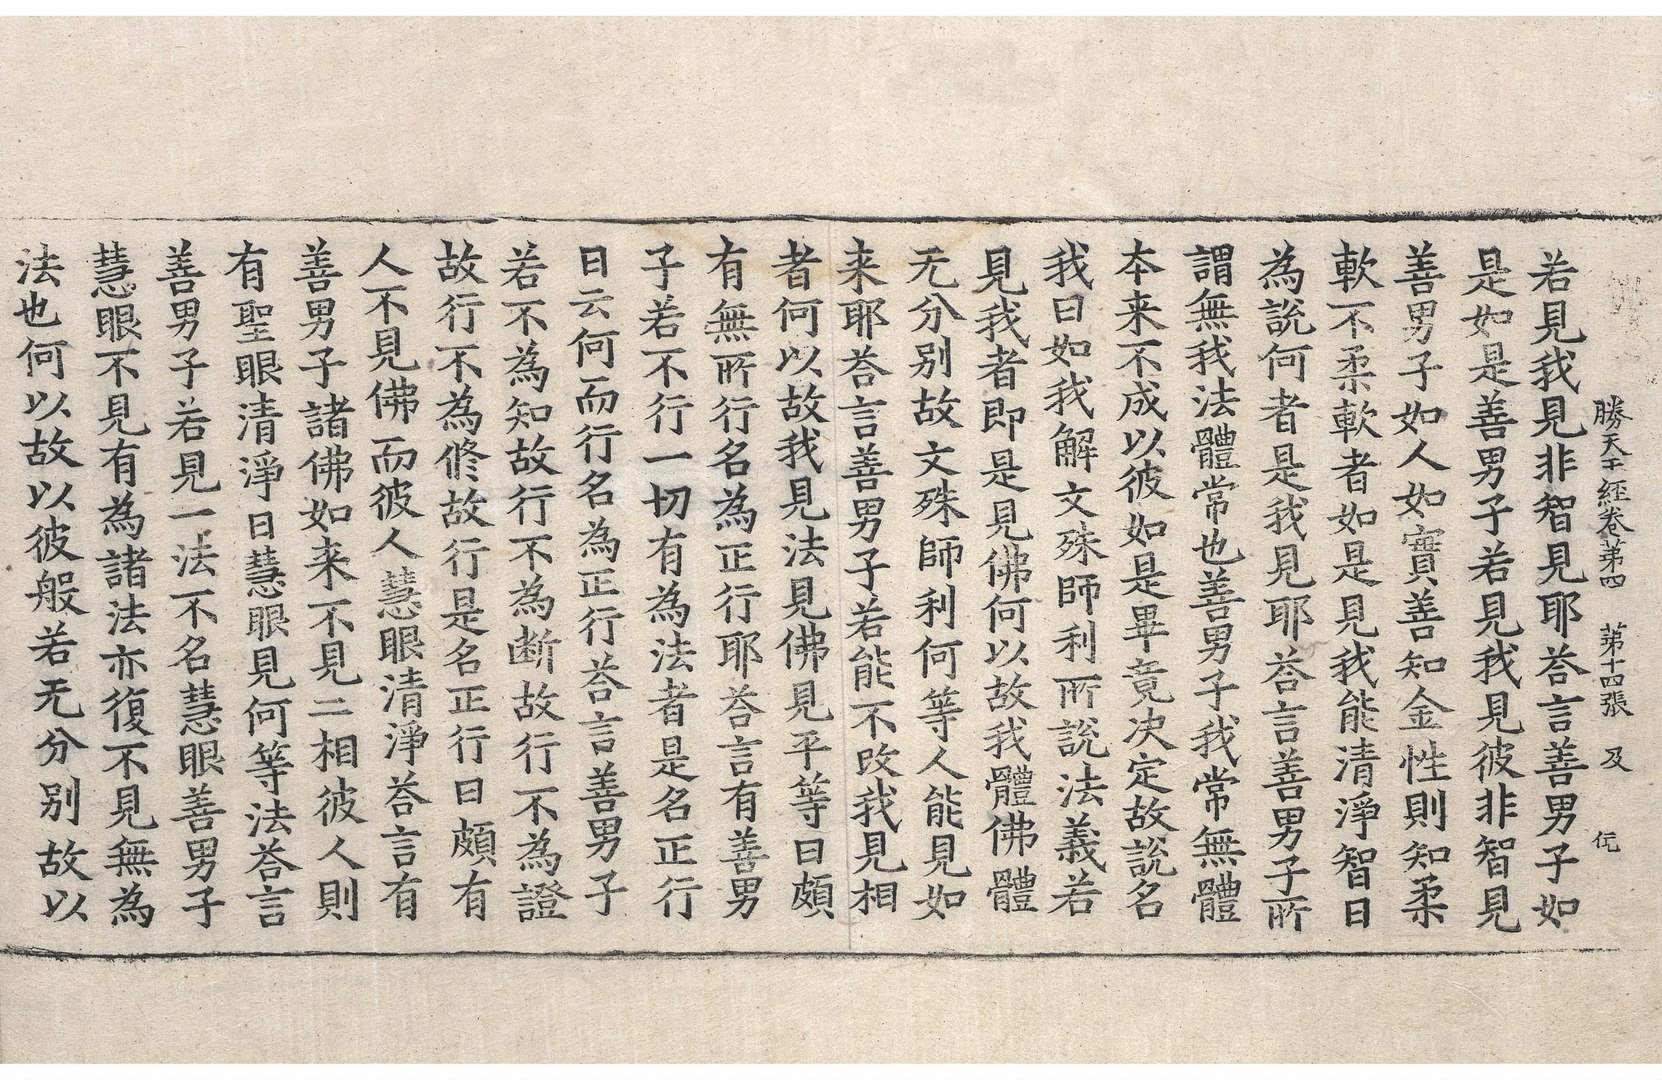 勝天王經卷第四　第十四張　及
若見我見非智見耶荅言善男子如
是如是善男子若見我見彼非智見
善男子如人如實善知金性則知柔
軟不柔軟者如是見我能清淨智日
為說何者是我見耶荅言善男子所
謂無我法體常也善男子我常無體
本来不成以彼如是畢竟决定故說名
我日如我解文殊師利所說法義若
見我者即是見佛何以故我體佛體
无分别故文殊師利何等人能見如
来耶荅言善男子若能不改我見相
者何以故我見法見佛見平等日頗
有無所行名為正行耶荅言有善男
子若不行一切有為法者是名正行
日云何而行名為正行荅言善男子
若不為知故行不為断故行不為證
故行不為修故行是名正行日頗有
人不見佛而彼人慧眼清淨荅言有
善男子諸佛如来不見二相彼人則
有聖眼清淨日慧眼見何等法荅言
善男子若見一法不名慧眼善男子
慧眼不見有為諸法亦復不見無為
法也何以故以彼般若无分别故以